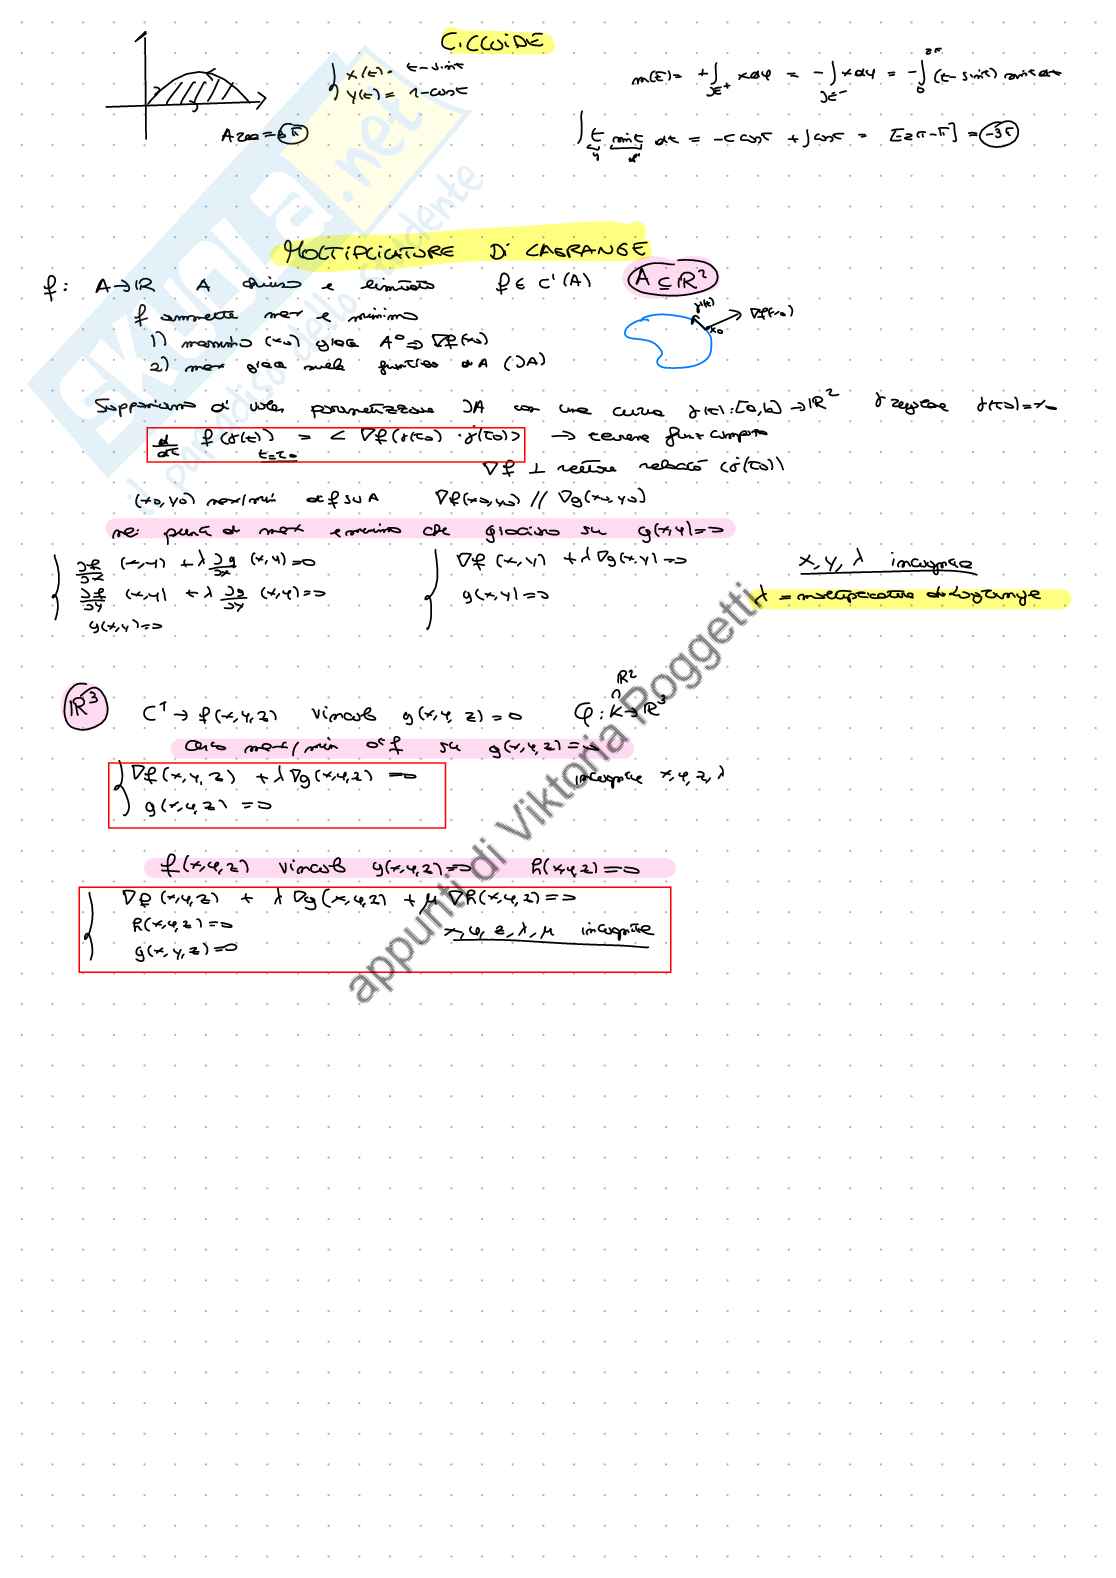 CICLOIDE
x(t) = t - sint
y(t) = 1 - cost
m(E) = + ∫∂E+ x dy = - ∫∂E- x dy = - ∫0 2π (t - sint) sint dt
Area = 3π
∫ t sint dt = -t cost + ∫cost = [-2π-π] = -3π
MOLTIPLICATORE DI LAGRANGE
f: A→ℝ A chiuso e limitato f ∈ C¹(A) A ⊆ ℝ²
f ammette max e minimo
γ'(t) x0 ∇f(x0)
1) massimo (x0) gioca A° ⇒ ∇f(x0)
2) max gioca sulla frontiera di A (∂A)
Supponiamo di voler parametrizzare ∂A con una curva γ(t): [a,b] → ℝ² γ regolare γ(t0) = x0
d/dt f(γ(t)) t=t0 = < ∇f(γ(t0) · γ'(t0)> →
∇f ⊥ vettore velocità (γ'(t0))
(x0,y0) max/min di f su A ∇f(x0,y0) // ∇g(x0,y0)
nei punti di max e minimo che giacciono su g(x,y)=0
∂f/∂x (x,y) + λ ∂g/∂x (x,y)=0
∂f/∂y (x,y) + λ ∂g/∂y (x,y)=0
g(x,y)=0
∇f (x,y) + λ∇g(x,y)=0
g(x,y)=0
x, y, λ incognite
λ = moltiplicatore di Lagrange
ℝ³ C¹ → f(x,y,z) vincolo g(x,y,z)=0 φ: K→ℝ³
ℝ²
Cerco max/min di f su g(x,y,z)=0
∇f(x,y,z) + λ∇g(x,y,z) =0
g(x,y,z) =0
incognite x,y,z,λ
f(x,y,z) vincolo g(x,y,z)=0 h(x,y,z)=0
∇f(x,y,z) + λ∇g(x,y,z) + μ∇h(x,y,z)=0
h(x,y,z)=0
g(x,y,z)=0
x, y, z, λ, μ incognite
SKUOLA.net
il paradiso dello studente
appunti di Viktoria Roggetti